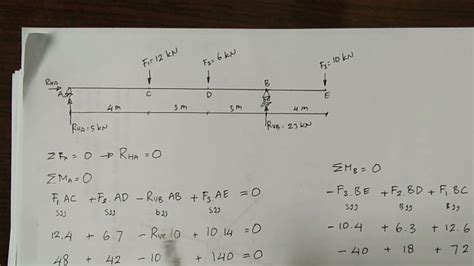 F₁=12 kN F₂=6 kN F₃=10 kN
RHA A B
C D E
4 m 3 m 3 m 4 m
RVA=5 kN RVB=23 kN
ΣFx = 0 → RHA = 0
ΣMA = 0
F₁.AC + F₂.AD − RVB.AB + F₃.AE = 0
12.4 + 6.7 − RVB.10 + 10.14 = 0
48 + 42 − 10 + 140 = 0
ΣMB = 0
−F₃.BE + F₂.BD + F₁.BC
−10.4 + 6.3 + 12.6
−40 + 18 + 72